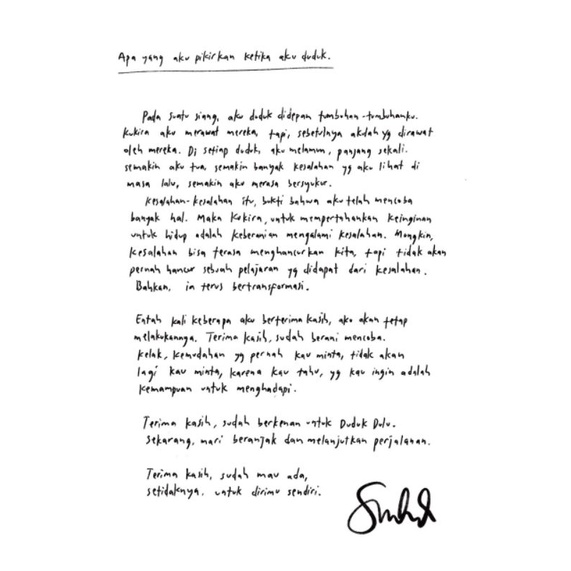 Apa yang aku pikirkan ketika aku duduk.
Pada suatu siang, aku duduk didepan tumbuhan-tumbuhanku.
Kukira aku merawat mereka, tapi, sebetulnya akulah yg dirawat
oleh mereka. Di setiap duduk, aku melamun, panjang sekali.
semakin aku tua, semakin banyak kesalahan yg aku lihat di
masa lalu, semakin aku merasa bersyukur.
Kesalahan-kesalahan itu, bukti bahwa aku telah mencoba
banyak hal. Maka kukira, untuk mempertahankan keinginan
untuk hidup adalah keberanian mengalami kesalahan. Mungkin,
kesalahan bisa terasa menghancurkan kita, tapi tidak akan
pernah hancur sebuah pelajaran yg didapat dari kesalahan.
Bahkan, ia terus bertransformasi.
Entah kali keberapa aku berterima kasih, aku akan tetap
melakukannya. Terima kasih, sudah berani mencoba.
kelak, kemudahan yg pernah kau minta, tidak akan
lagi kau minta, karena kau tahu, yg kau ingin adalah
kemampuan untuk menghadapi.
Terima kasih, sudah berkenan untuk Duduk Dulu.
sekarang, mari beranjak dan melanjutkan perjalanan.
Terima kasih, sudah mau ada,
setidaknya. untuk dirimu sendiri.